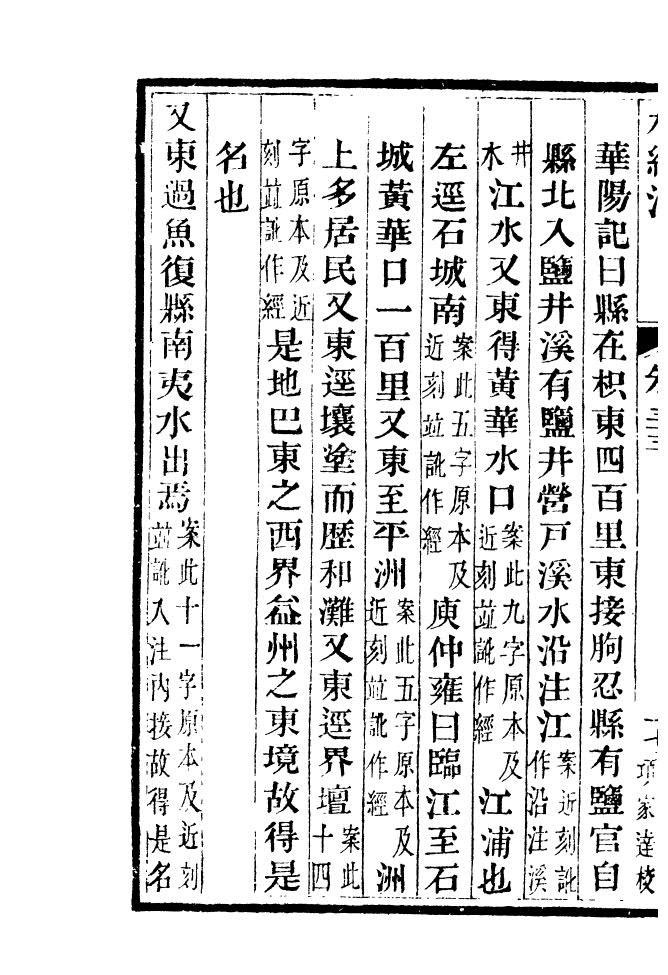 家達校
華陽記曰縣在枳東四百里東接朐忍縣有鹽官自
縣北入鹽井溪有鹽井營戸溪水沿注江案近刻訛作沿注溪
井水江水又東得黃華水口案此九字原本及近刻竝訛作經江浦也
左逕石城南案此五字原本及近刻竝訛作經庾仲雍曰臨江至石
城黃華口一百里又東至平洲案此五字原本及近刻竝訛作經洲
上多居民又東逕壤塗而歷和灘又東逕界壇案此十四
字原本及近刻竝訛作經是地巴東之西界益州之東境故得是
名也
又東過魚復縣南夷水出焉案此十一字原本及近刻竝訛入注內接故得是名